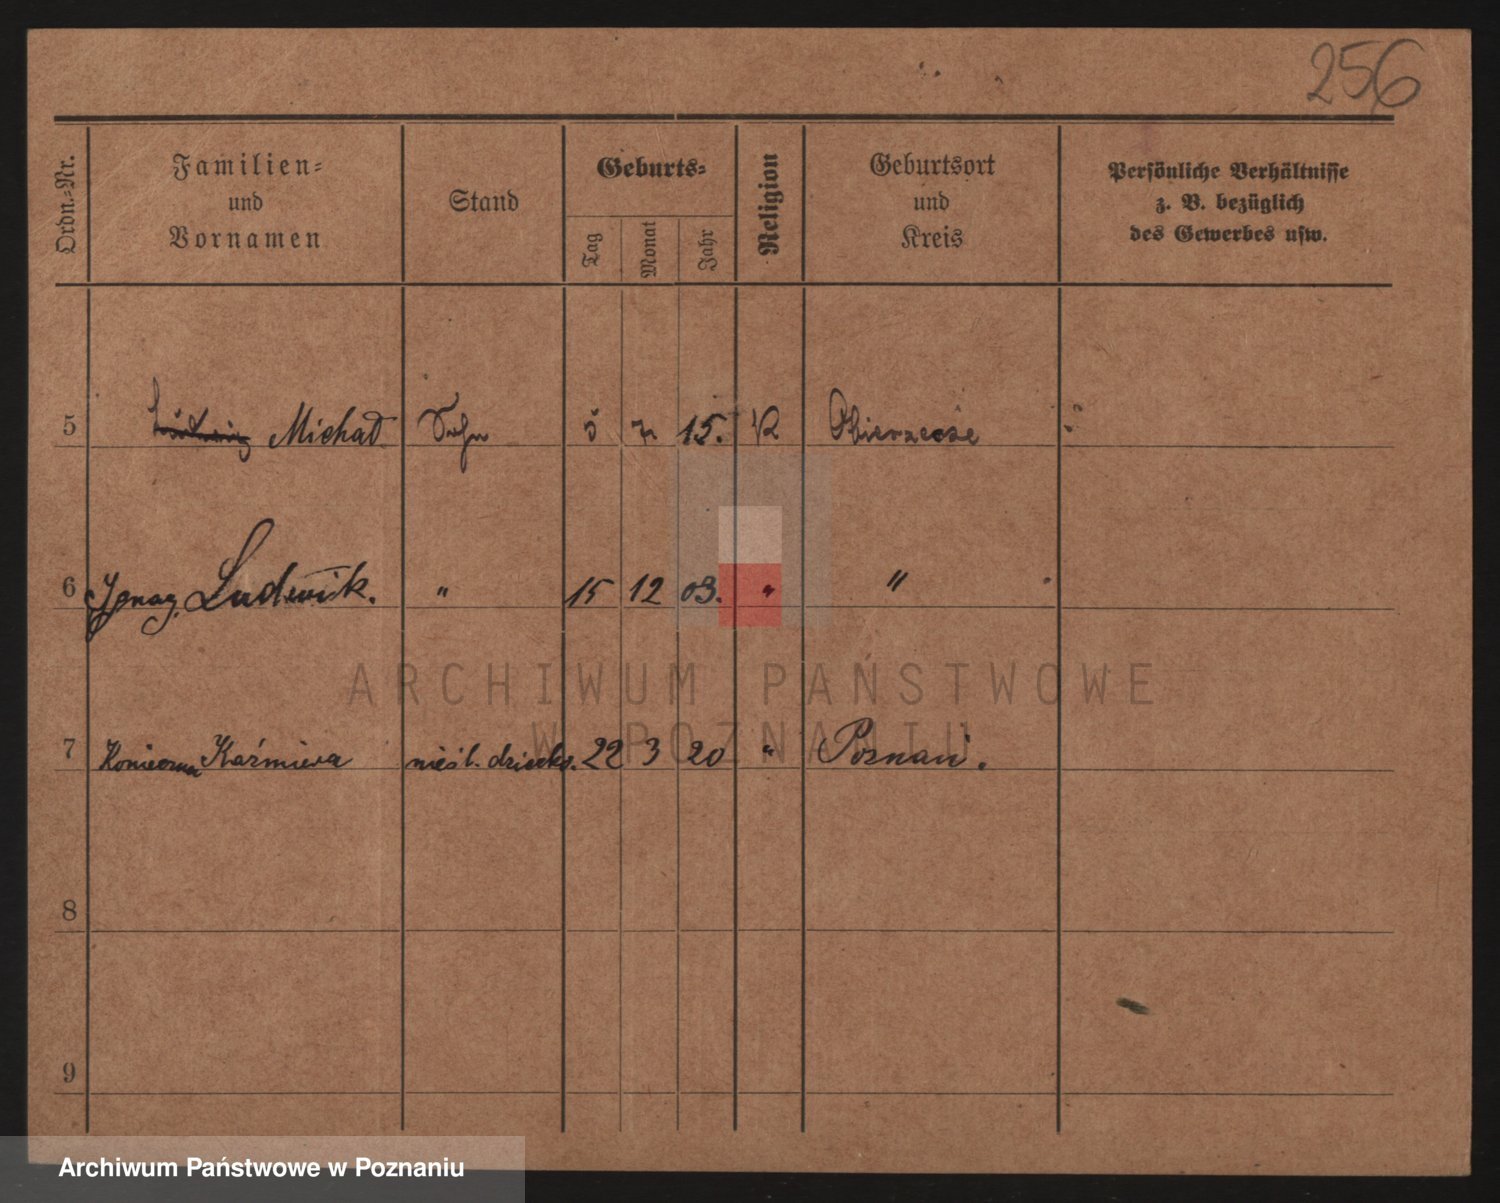 256
Ordn.-Nr.
Familien-
und
Vornamen
Stand
Geburts-
Tag
Monat
Jahr
Religion
Geburtsort
und
Kreis
Persönliche Verhältnisse
z. B. bezüglich
des Gewerbes usw.
5 Ludwig Michał Sohn 5 7 15. K
6 Ignacy Ludwik. " 15 12 03. " "
7 Konieczna Kaźmiera nieśl. dziecko. 22 3 20 " Poznań.
8
9
ARCHIWUM PAŃSTWOWE
W POZNANIU
Archiwum Państwowe w Poznaniu